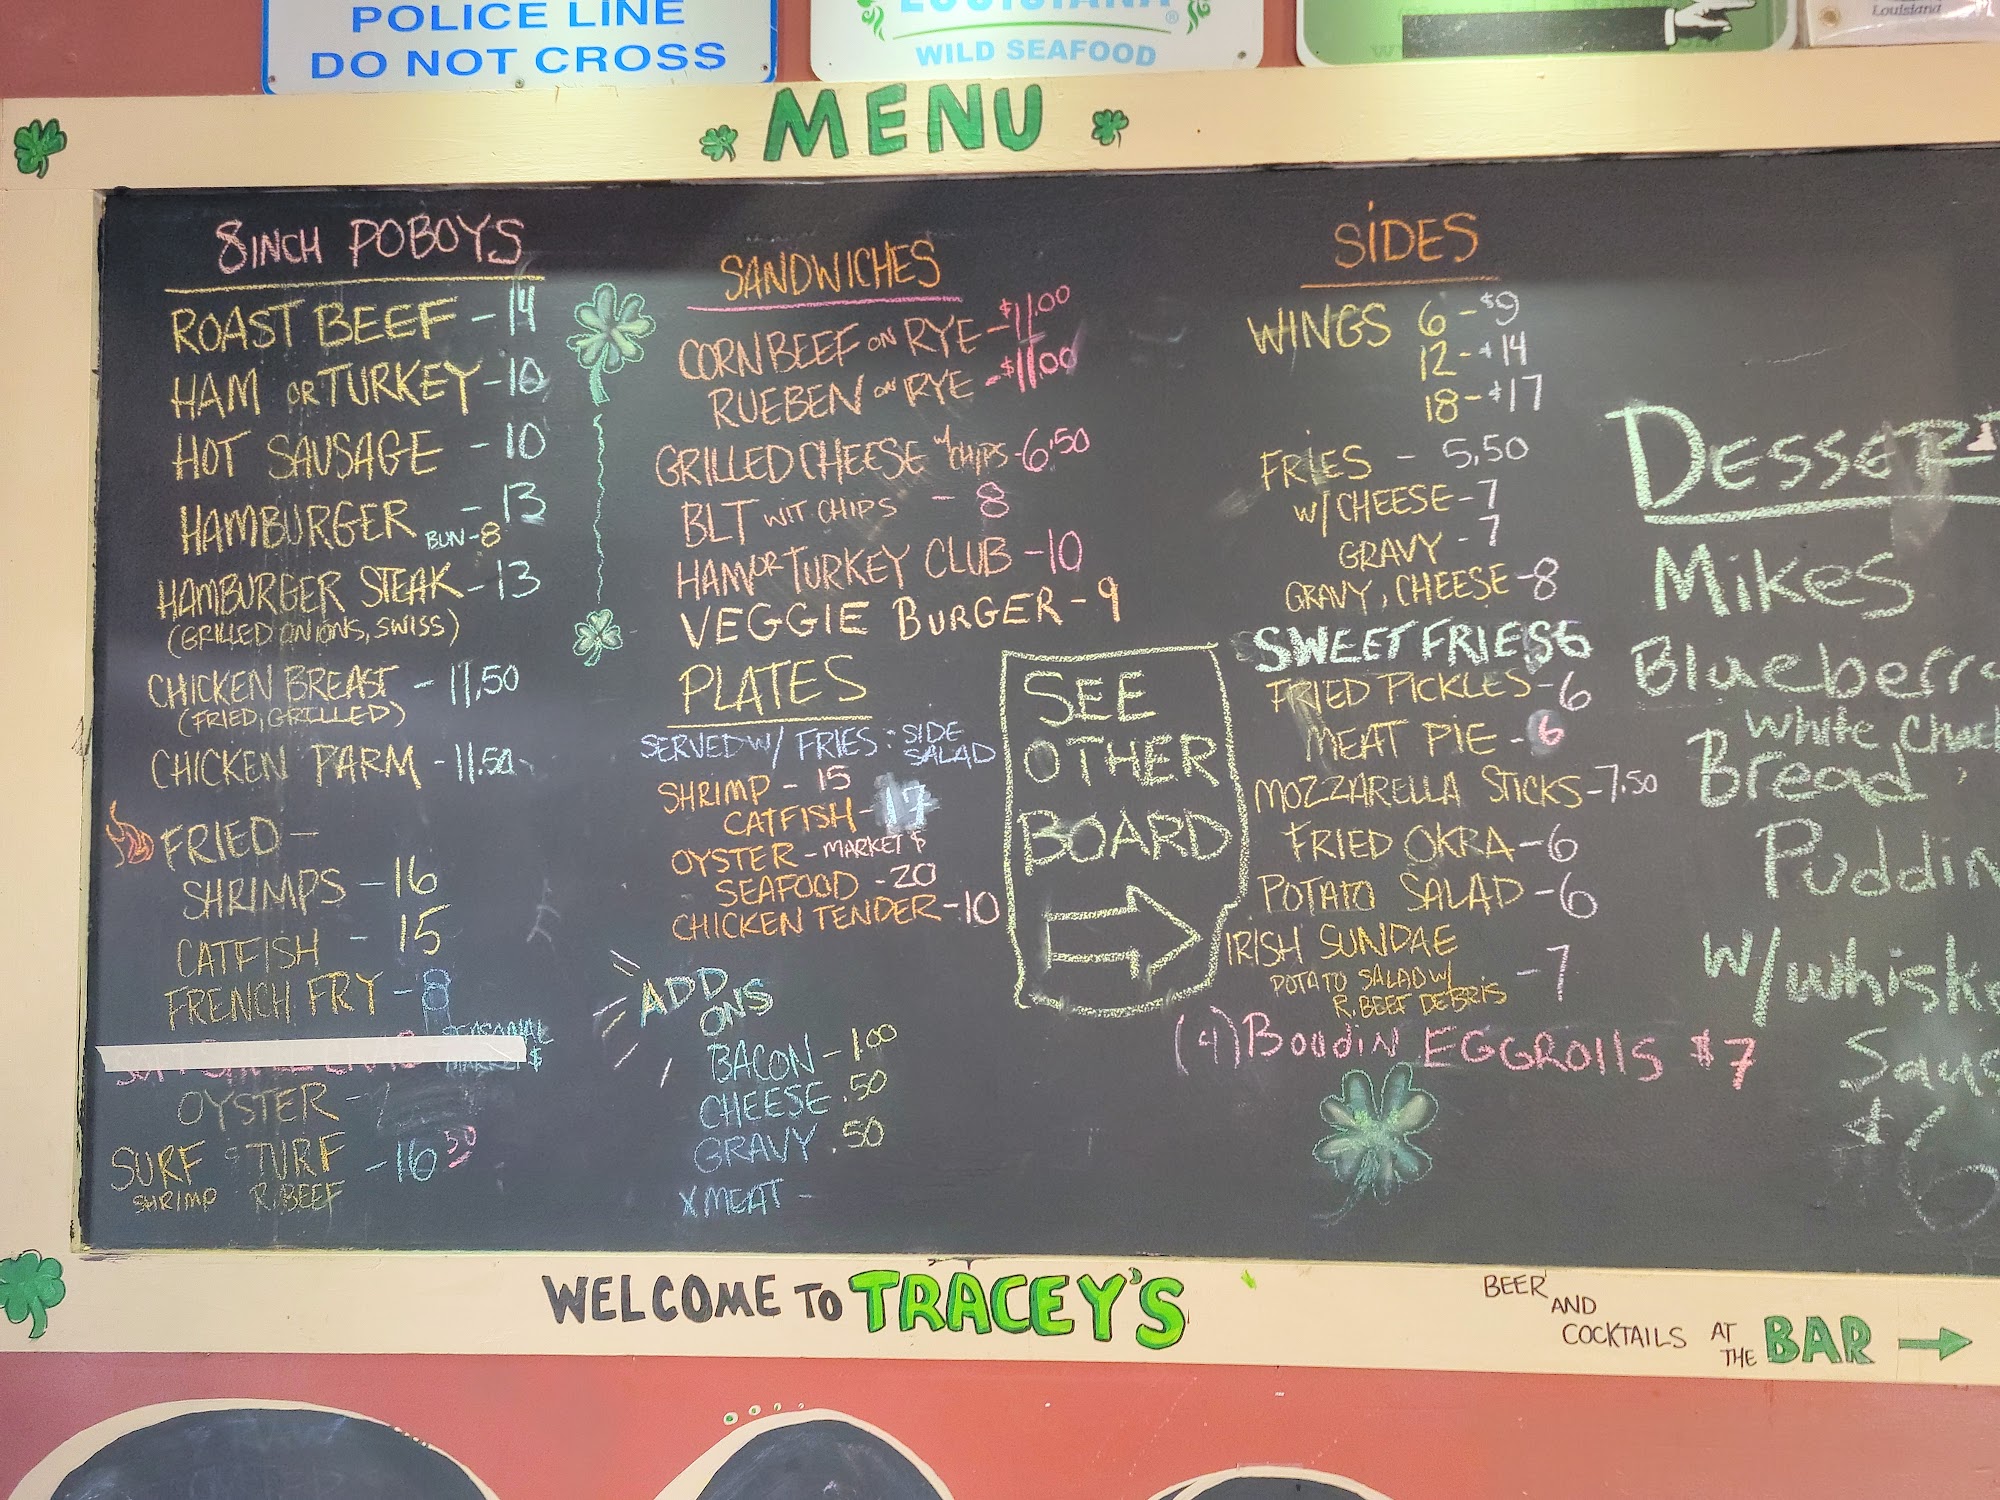 POLICE LINE
DO NOT CROSS
LOUISIANA
WILD SEAFOOD
Louisiana
MENU
8INCH POBOYS
ROAST BEEF - 14
HAM OR TURKEY - 10
HOT SAUSAGE - 10
HAMBURGER - 13
BUN - 8
HAMBURGER STEAK - 13
(GRILLED ONIONS, SWISS)
CHICKEN BREAST - 11.50
(FRIED, GRILLED)
CHICKEN PARM - 11.50
FRIED -
SHRIMPS - 16
CATFISH - 15
FRENCH FRY - 8
SEASONAL
MARKET $
OYSTER -
SURF & TURF - 16 50
SHRIMP R. BEEF
SANDWICHES
CORN BEEF ON RYE - $11.00
RUEBEN ON RYE - $11.00
GRILLED CHEESE W/CHIPS - 6.50
BLT WIT CHIPS - 8
HAM OR TURKEY CLUB - 10
VEGGIE BURGER - 9
PLATES
SERVED W/ FRIES : SIDE
SALAD
SHRIMP - 15
CATFISH - 17
OYSTER - MARKET $
SEAFOOD - 20
CHICKEN TENDER - 10
ADD
ONS
BACON - 1.00
CHEESE .50
GRAVY .50
X MEAT -
SEE
OTHER
BOARD
SIDES
WINGS 6 - $9
12 - $14
18 - $17
FRIES - 5.50
W/ CHEESE - 7
GRAVY - 7
GRAVY, CHEESE - 8
SWEET FRIES 6
FRIED PICKLES - 6
MEAT PIE - 6
MOZZARELLA STICKS - 7.50
FRIED OKRA - 6
POTATO SALAD - 6
IRISH SUNDAE
POTATO SALAD W/ - 7
R. BEEF DEBRIS
(4) BOUDIN EGGROLLS $7
DESSERT
Mikes
Blueberry
White Choc
Bread
Puddin
W/ Whiske
Sauc
$6
WELCOME TO TRACEY'S
BEER AND
COCKTAILS AT
THE BAR